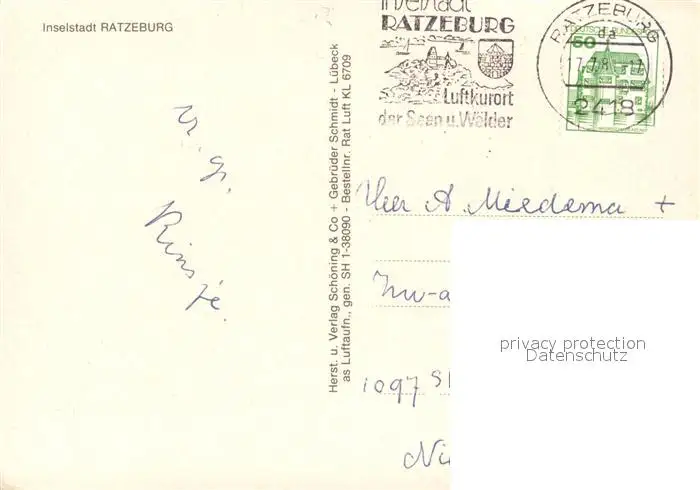 Inselstadt RATZEBURG
Inselstadt
RATZEBURG
Luftkurort
der Seen u. Wälder
RATZEBURG
da
17.7.8
2418
60
DEUTSCHE BUNDESPOST
Herst. u. Verlag Schöning & Co + Gebrüder Schmidt - Lübeck
as Luftaufn., gen. SH 1-38090 - Bestellnr. Rat Luft KL 6709
v. g.
Rinsje.
Heer A Miedema +
1097
privacy protection
Datenschutz